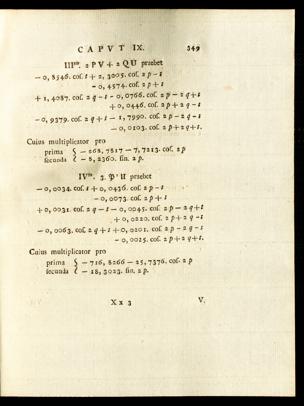 CAPVT IX. 349
III^tio. 2 P V + 2 Q U praebet
— 0, 8546. coſ. s + 2, 3005. coſ. 2 p — s
— 0, 4574. coſ. 2 p + s
+ 1, 4087. coſ. 2 q — s — 0, 0766. coſ. 2 p — 2 q + s
+ 0, 0446. coſ. 2 p + 2 q — s
— 0, 9379. coſ. 2 q + s — 1, 7990. coſ. 2 p — 2 q — s
— 0, 0103. coſ. 2 p + 2 q + s.
Cuius multiplicator pro
prima { — 268, 7817 — 7, 7213. coſ. 2 p
ſecunda { — 8, 2360. ſin. 2 p.
IV^to. 3. P U praebet
— 0, 0034. coſ. s + 0, 0436. coſ. 2 p — s
— 0, 0073. coſ. 2 p + s
+ 0, 0031. coſ. 2 q — s — 0, 0045. coſ. 2 p — 2 q + s
+ 0, 0220. coſ. 2 p + 2 q — s
— 0, 0063. coſ. 2 q + s + 0, 0201. coſ. 2 p — 2 q — s
— 0, 0025. coſ. 2 p + 2 q + s.
Cuius multiplicator pro
prima { — 716, 8266 — 25, 7376. coſ. 2 p
ſecunda { — 18, 3023. ſin. 2 p.
X x 3 V.